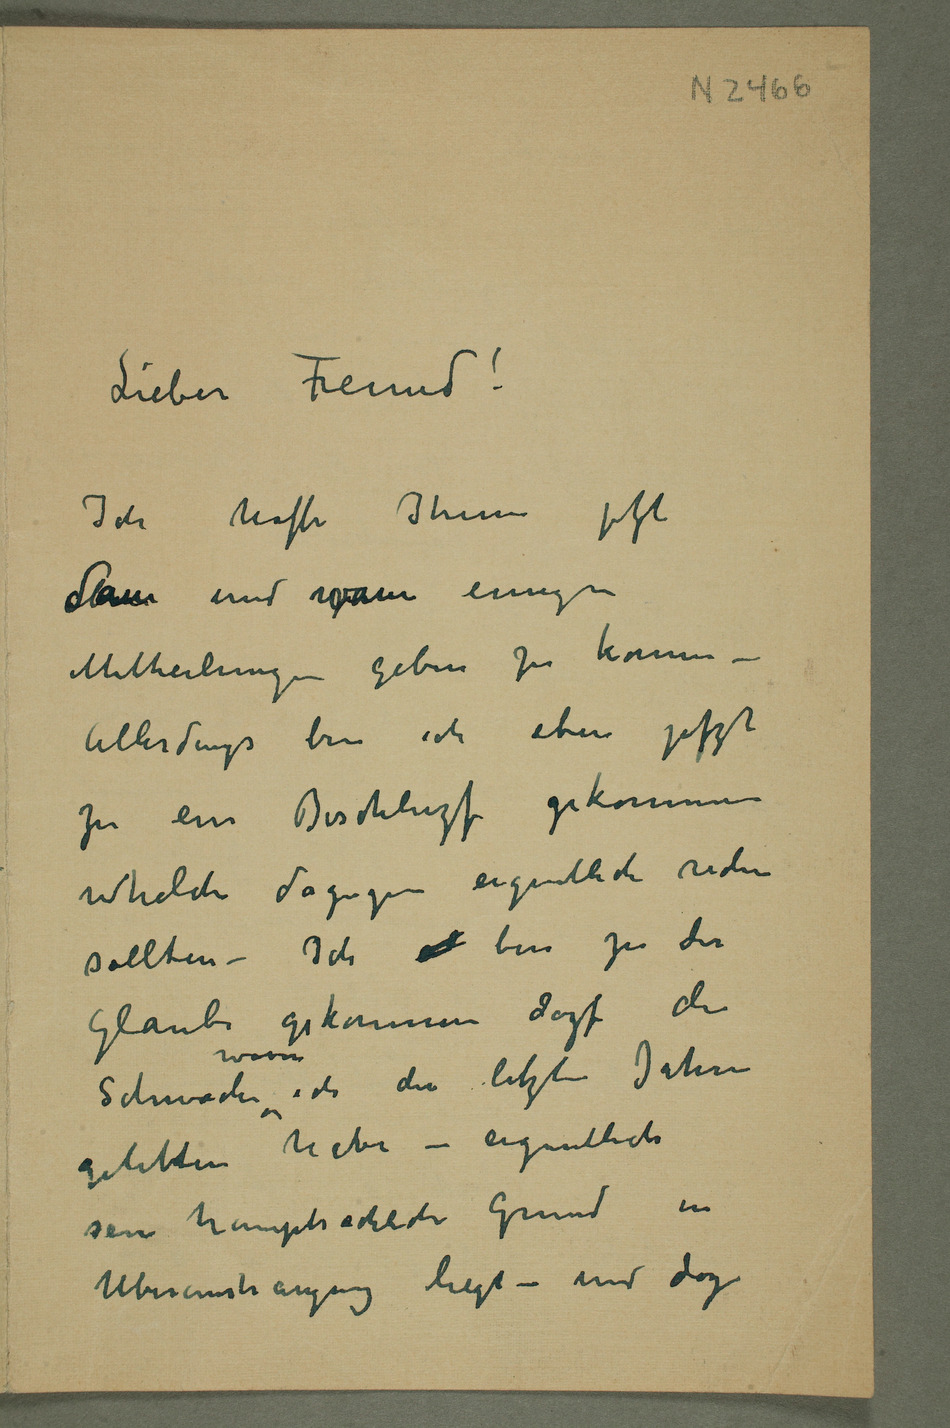 N 2466
Lieber Freund!
Ich hoffe Ihnen jetzt
dann und wann einige
Mittheilungen geben zu konnen –
Allerdings bin ich eben jetzt
zu ein Beschluss gekommen
welche dagegen eigentlich reden
sollten – Ich bin zu der
Glaube gekommen dass die
Schwäche woran ich die letzte Jahren
gelitten habe – eigentlich
sein hauptsächliche Grund in
Uberanstrangung liegt – und das